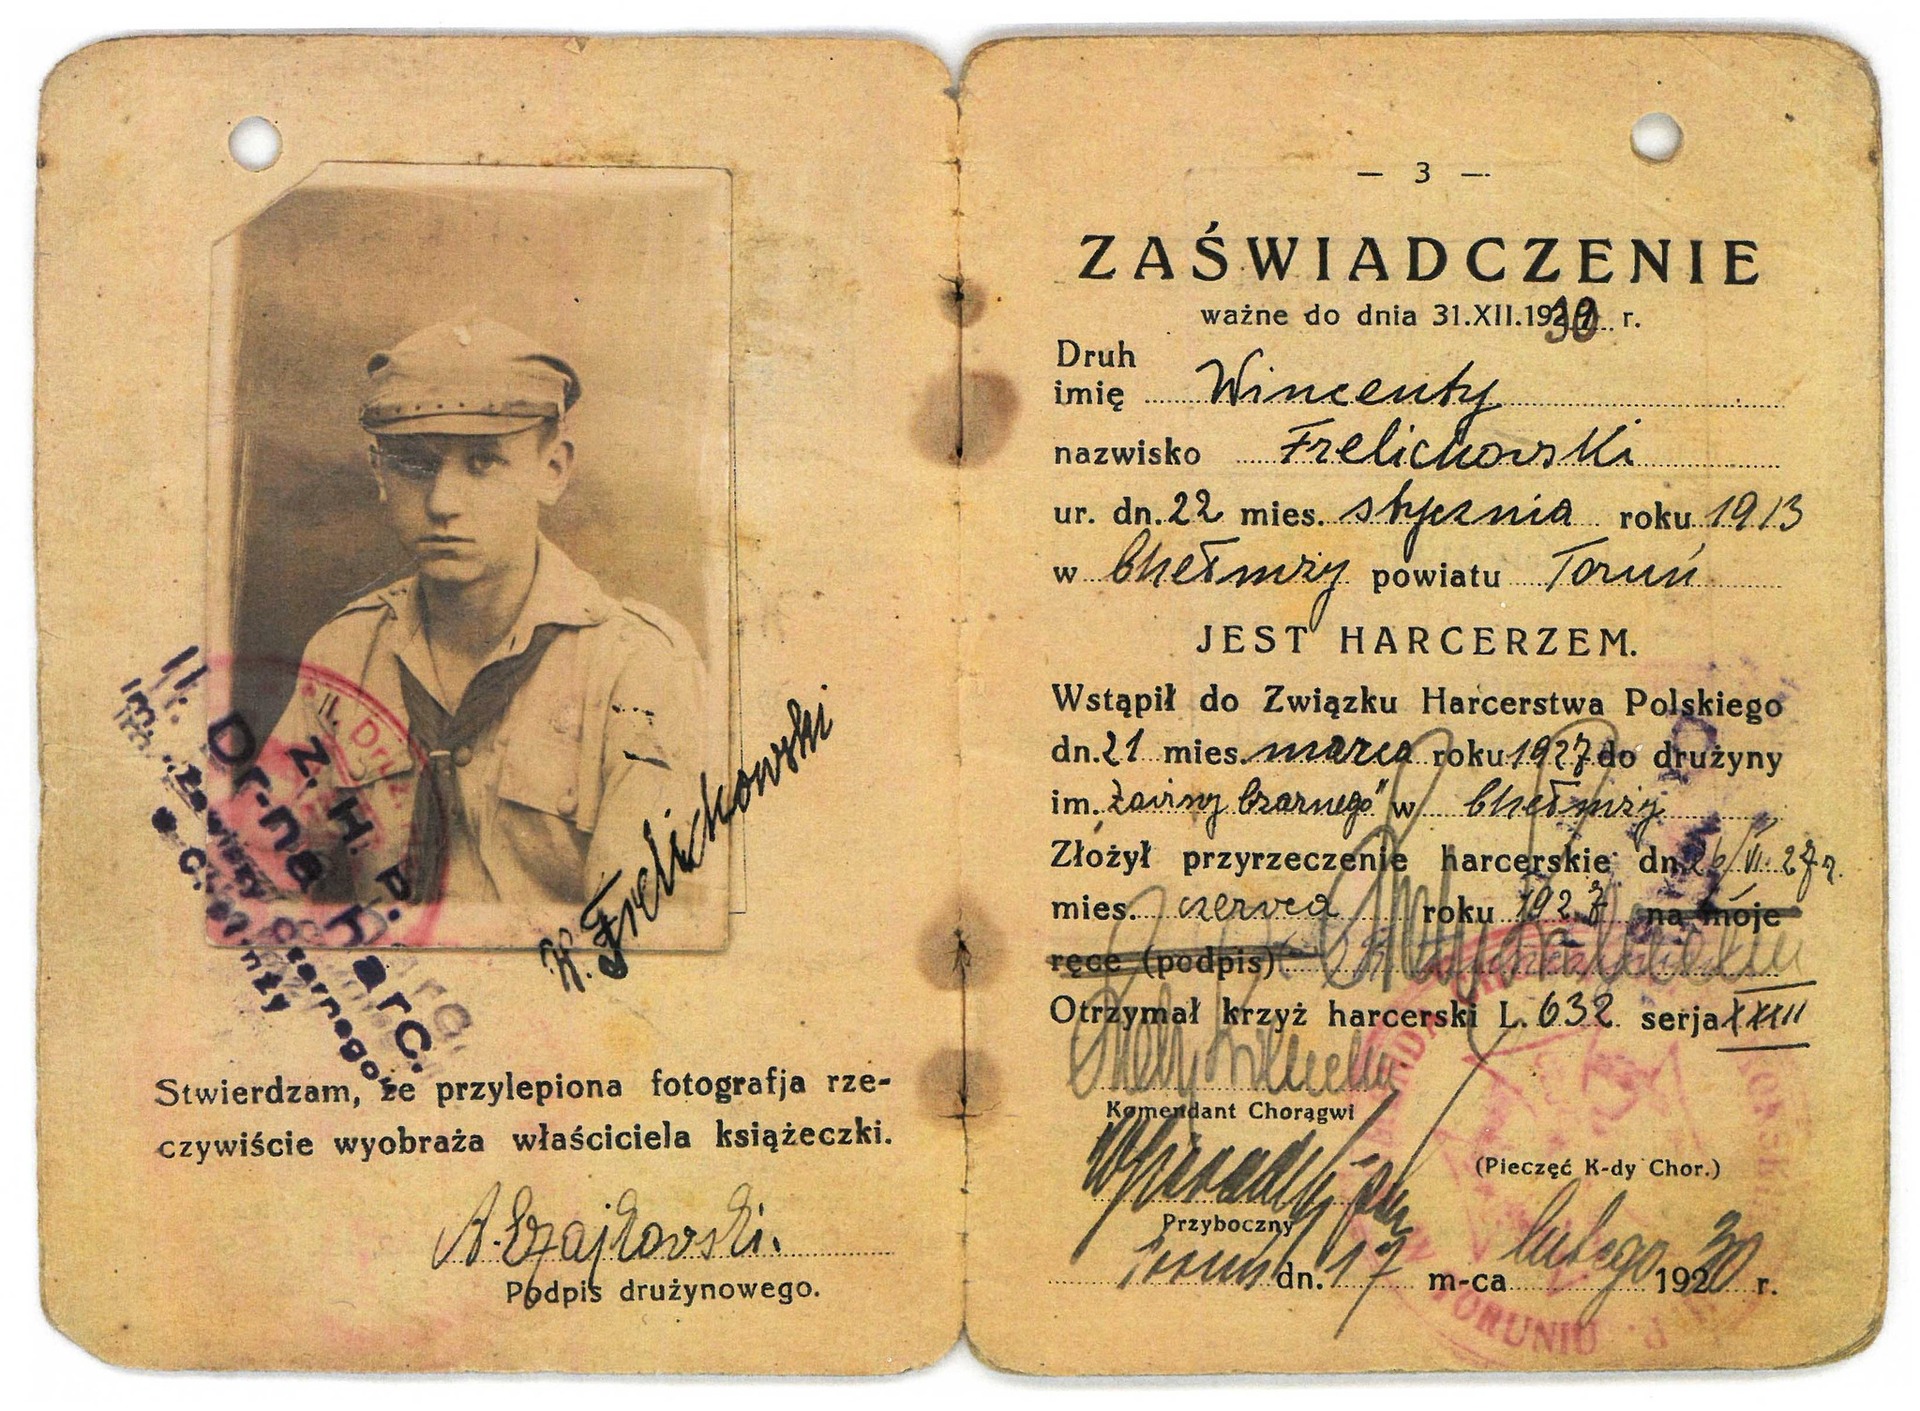 II. Dr-na Harc.
Z. H. P.
im. „Zawiszy Czarnego"
II. Druż.
W. Frelichowski
Stwierdzam, że przylepiona fotografja rze-
czywiście wyobraża właściciela książeczki.
A. Czajkowski.
Podpis drużynowego.
— 3 —
ZAŚWIADCZENIE
ważne do dnia 31.XII.1930 r.
Druh
imię Wincenty
nazwisko Frelichowski
ur. dn. 22 mies. stycznia roku 1913
w Chełmży powiatu Toruń
JEST HARCERZEM.
Wstąpił do Związku Harcerstwa Polskiego
dn. 21 mies. marca roku 1927 do drużyny
im. Zawiszy Czarnego" w Chełmży
Złożył przyrzeczenie harcerskie dn. 26/VI. 27 r.
mies. czerwca roku 1927 na moje
ręce (podpis)
Otrzymał krzyż harcerski L. 632 serja XXIII
Komendant Chorągwi
(Pieczęć K-dy Chor.)
Przyboczny
Toruń dn. 17 m-ca lutego 1930 r.
TORUNIU